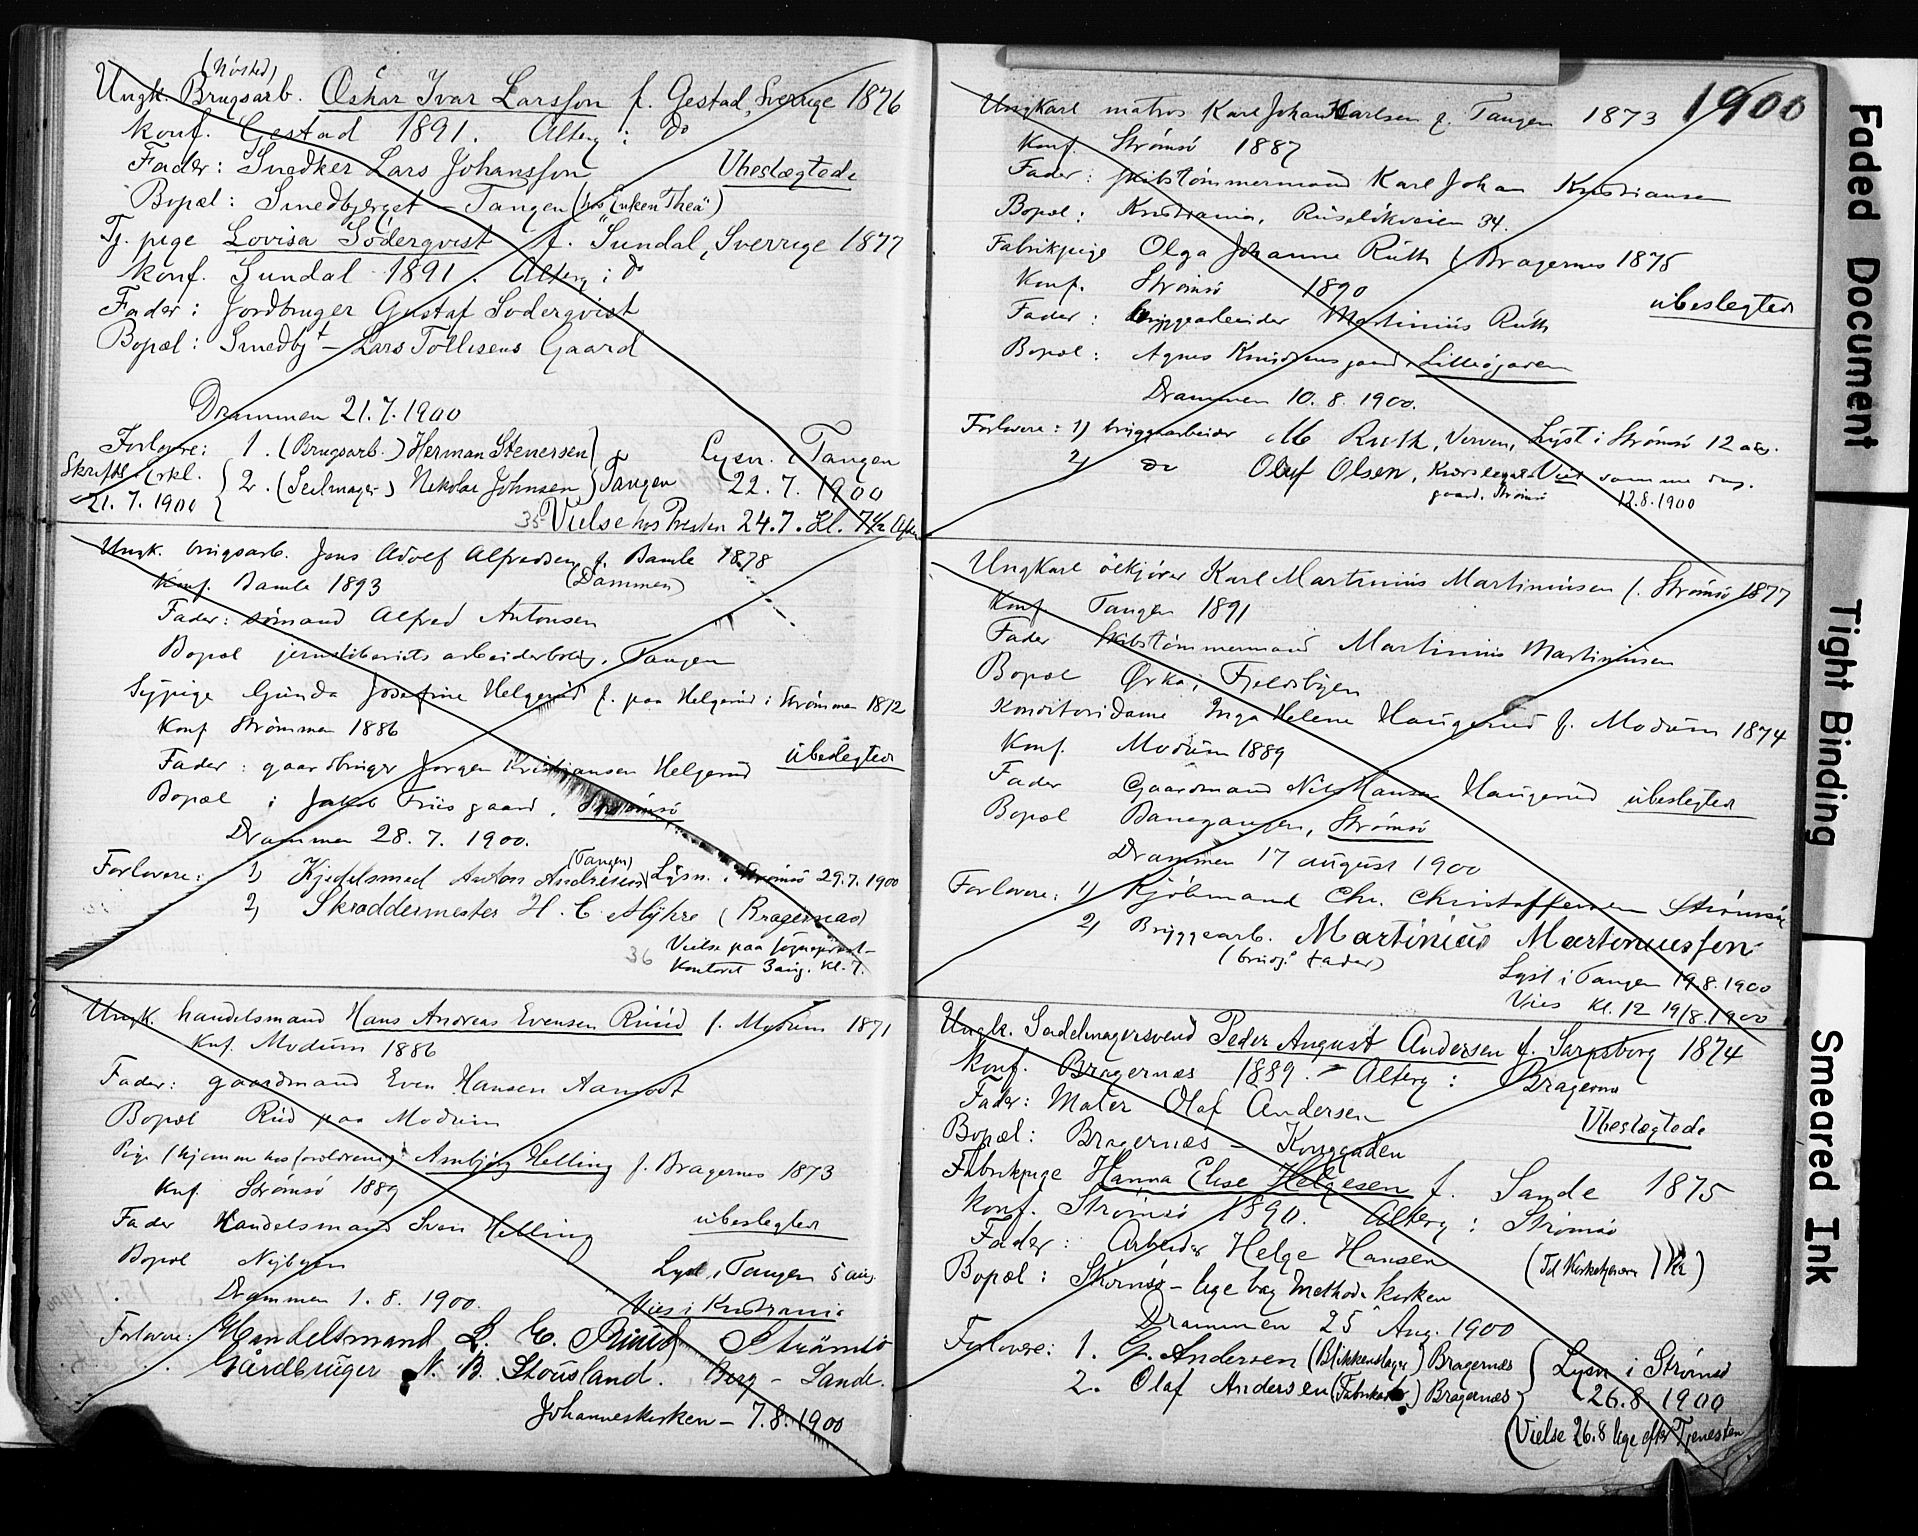 (Nøsted)
Ungk. Brugsarb. Oskar Ivar Larsson f. Gestad, Sverige 1876
Konf. Gestad 1891. Alterg: do
Fader: Snedker Lars Johansson Ubeslægtede
Bopæl: Smedbjerget – Tangen (hos Enken Thea)
Tj. pige Lovisa Söderqvist f. Sundal, Sverrige 1877
Konf. Sundal 1891. Alterg: do
Fader: Jordbruger Gustaf Söderqvist
Bopæl: Smedbjt – Lars Tollisens Gaard
Drammen 21.7.1900
Forlovere: 1. (Brugsarb.) Herman Stenersen Lysn. i Tangen
Skriftl. Erkl. 2. (Seilmager) Nikolai Johnsen } Tangen 22.7.1900
21.7.1900
35 Vielse hos Presten 24.7. Kl. 7½ Aften
Ungk. brugsarb. Jens Adolf Alfredsen f. Bamle 1878
Konf. Bamle 1893 (Dammen)
Fader: sømand Alfred Antonsen
Bopæl jernstøberiets arbeiderbolig, Tangen
Sypige Gunda Josefine Helgerud f. paa Helgerud i Strømmen 1872
Konf Strømmen 1886
Fader: gaardbruger Jørgen Kristiansen Helgerud ubeslegtede
Bopæl i Jakob Friis gaard, Strømsø
Drammen 28.7.1900.
Forlovere: 1) Kjedelsmed Anton Andresen (Tangen) Lysn. i Strømsø 29.7.1900
2) Skræddermester H. C. Myhre (Bragernæs)
36 Vielse paa sogneprest-
kontoret 3 aug. kl. 7.
Ungk. handelsmand Hans Andreas Evensen Ruud f. Modum 1871
Knf. Modum 1886
Fader: gaardmand Even Hansen Aamodt
Bopæl Rud paa Modum
Pige (hjemme hos forældrene) Ambjørg Helling f. Bragernes 1873
Knf. Strømsø 1889
Fader Handelsmand Sven Helling ubeslegted
Bopæl Nybyen Lyst i Tangen 5 aug.
Drammen 1.8.1900. Vies i Kristiania
Forlovere: Handelsmand L. E. Ruud Strømsø
Gårdbruger N. B. Stousland. Berg – Sande.
Johanneskirken – 7.8.1900
1900
Ungkarl matros Karl Johan Karlsen f. Tangen 1873
Konf. Strømsø 1887
Fader: skibstømmermand Karl Johan Kristiansen
Bopæl: Kristiania, Ruseløkveien 34.
Fabrikpige Olga Johanne Ruth f. Bragernes 1875
Konf. Strømsø 1890
Fader: bryggearbeider Martinius Ruth ubeslegted
Bopæl: Agnes Knudsens gaard, Lilleøgaden
Drammen 10.8.1900.
Forlovere: 1) bryggearbeider M Ruth, Verven, Lyst i Strømsø 12 aug.
2) do Oluf Olsen, Viet samme dag.
gaard, Strømsø 12.8.1900
Ungkarl ølkjører Karl Martinius Martiniusen f. Strømsø 1877
Konf Tangen 1891
Fader Skibstømmermand Martinius Martiniusen
Bopæl Ørka i Fjeldbyen
Konditoridame Inga Helene Haugerud f. Modum 1874
Konf. Modum 1889
Fader Gaardmand Nils Hansen Haugerud ubeslegted
Bopæl Banegangen, Strømsø
Drammen 17 august 1900
Forlovere: 1) Kjøbmand Chr. Christoffersen Strømsø
2) Bryggearb. Martinius Martiniussen
(brudg. fader)
Lyst i Tangen 19.8.1900
Vies kl. 12 19/8.1900
Ungk. Sadelmagersvend Peder August Andersen f. Sarpsborg 1874
Konf. Bragernæs 1889. – Alterg: Bragernæs
Fader: Maler Olaf Andersen
Bopæl: Bragernæs – Konggaden Ubeslægtede
Fabrikpige Hanna Elise Helgesen f. Sande 1875
Konf. Strømsø 1890. Alterg: Strømsø
Fader: Arbeider Helge Hansen
Bopæl: Strømsø – lige bag Methodi. kirken (Til Kirketjeneren 1 Kr)
Drammen 25 Aug. 1900
Forlovere: 1. G. Andersen (Blikkenslager) Bragernæs { Lysn i Strømsø
2. Olaf Andersen (Fabrikarb.) Bragernæs 26.8.1900
(Vielse 26.8 lige efter Tjenesten
Faded Document
Tight Binding
Smeared Ink